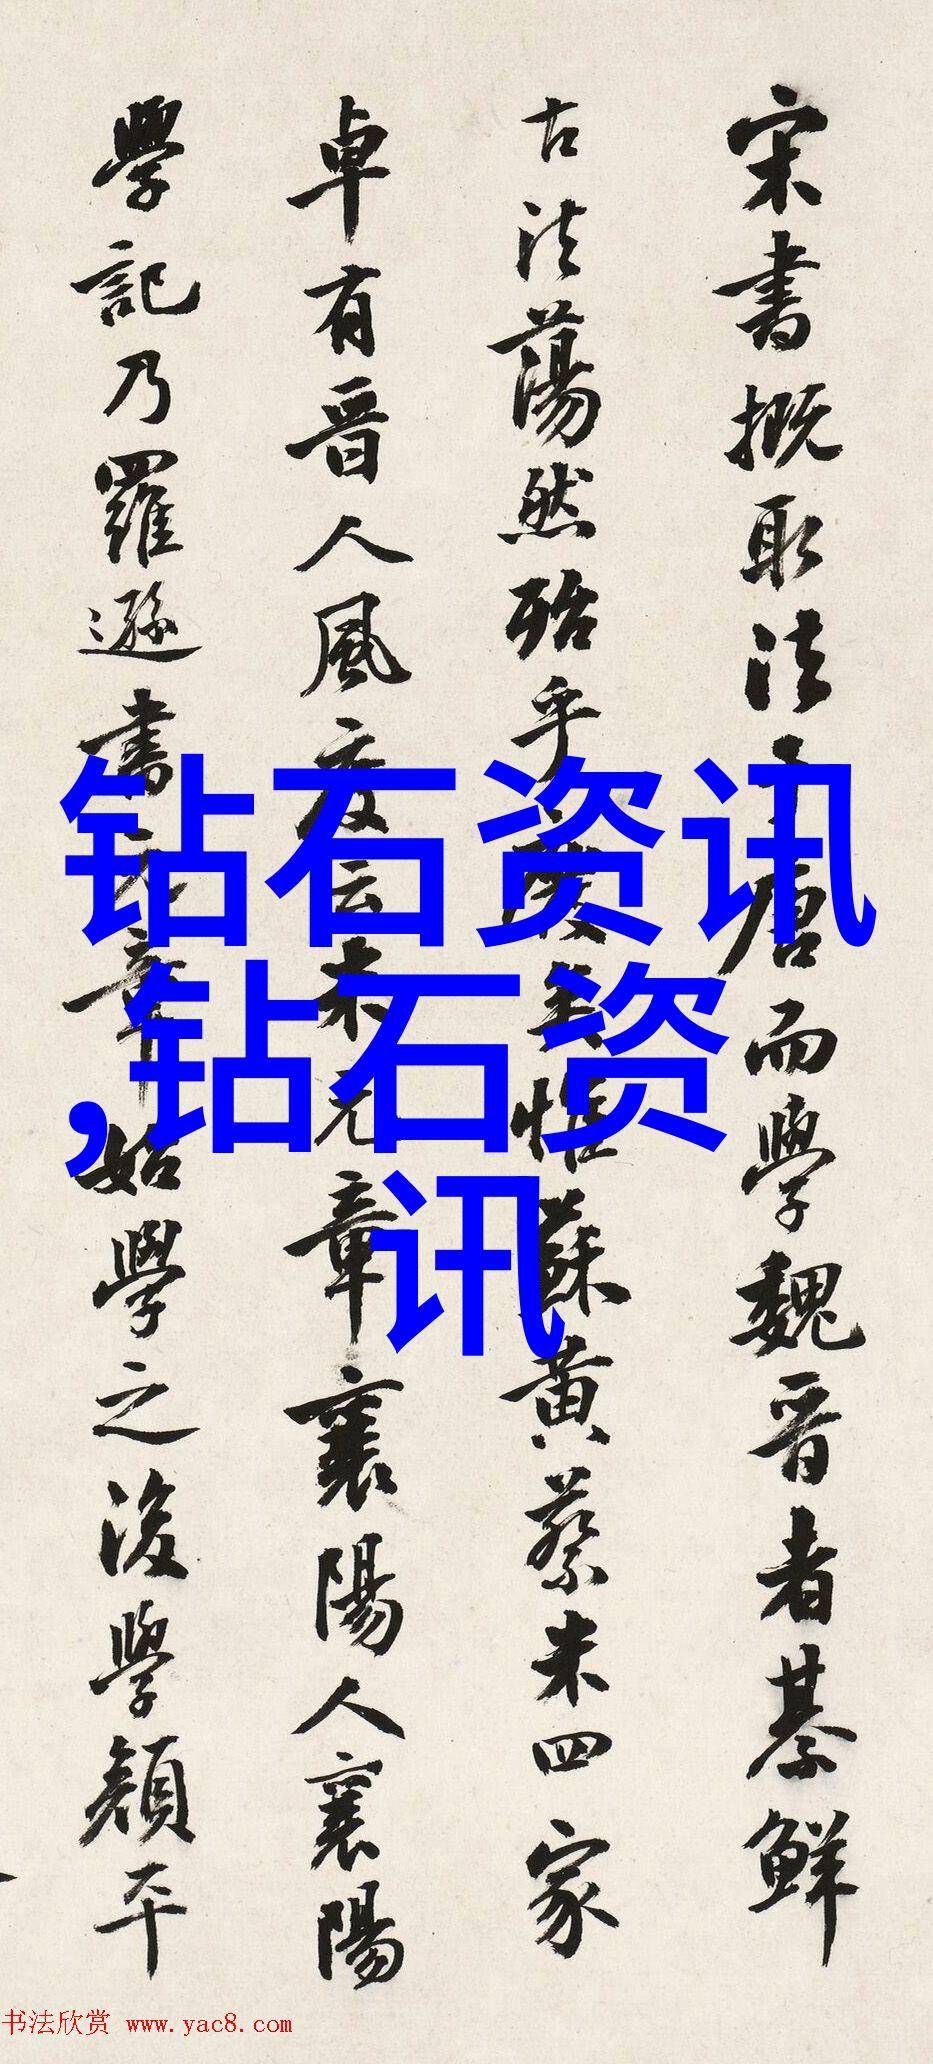 宋書概取法于唐而學魏晉者綦鮮
古法蕩然殆乎惟蘇黃蔡米四家
卓有晉人風度云米元章襄陽人襄陽
學記乃羅遜書元章始學之後學顏平
钻石资讯
,钻石资
讯
书法欣赏 www.yac8.com